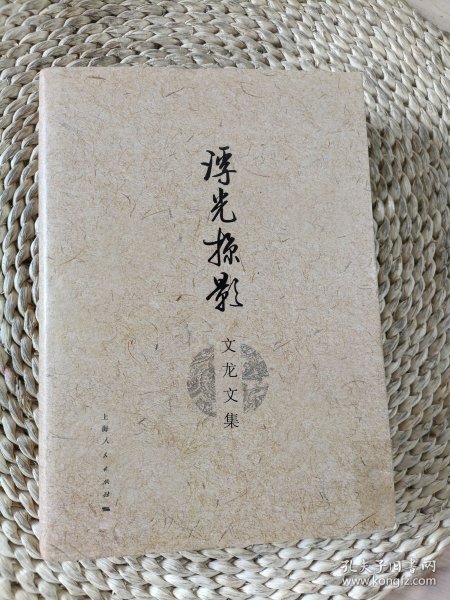 浮光掠影
文龙文集
上海人民出版社
孔夫子旧书网
www.kongfz.com